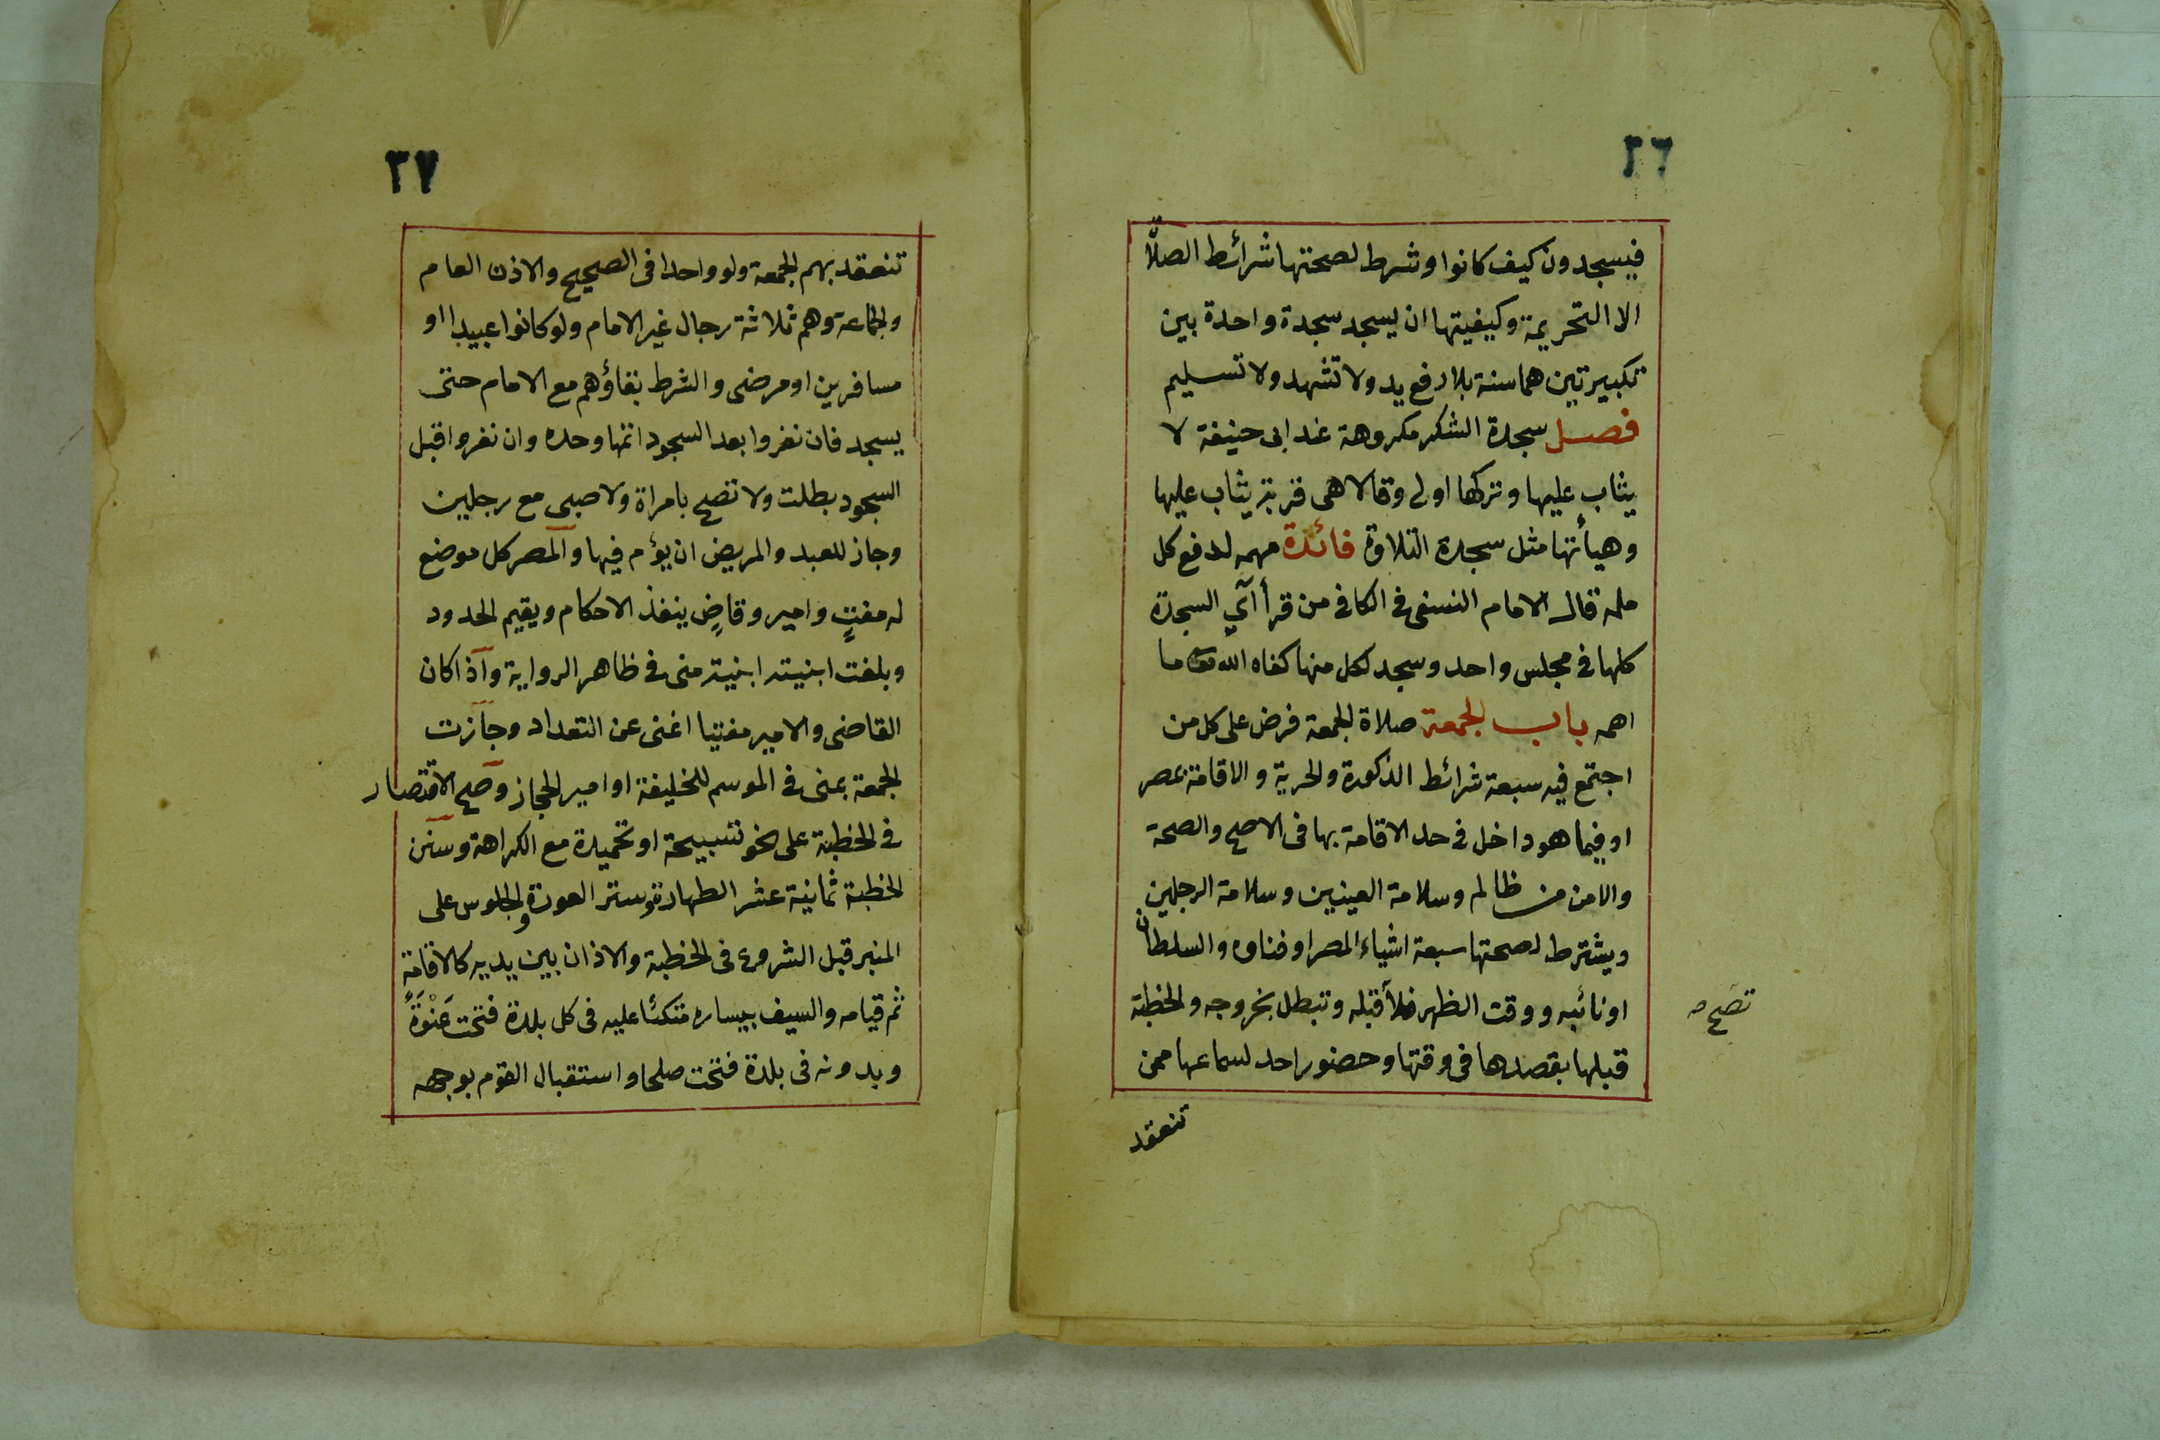 ٢٦
فيسجدون كيف كانوا وشرط لصحتها شرائط الصلا
الا التحريمة وكيفيتها ان يسجد سجدة واحدة بين
تكبيرتين هما سنة بلا رفع يد ولا تشهد ولا تسليم
فصل سجدة الشكر مكروهة عند ابى حنيفة لا
يثاب عليها وتركها اولى وقالا هى قربة يثاب عليها
وهيأتها مثل سجدة التلاوة فائدة مهمه لدفع كل
ملمه قال الامام النسفى فى الكافى من قرأ آي السجدة
كلها فى مجلس واحد وسجد لكل منها كفاه الله تعا ما
اهمه باب الجمعة صلاة الجمعة فرض على كل من
اجتمع فيه سبعة شرائط الذكورة والحرية والاقامة بمصر
او فيما هو داخل فى حد الاقامة بها فى الاصح والصحة
والامن من ظالم وسلامة العينين وسلامة الرجلين
ويشترط لصحتها سبعة اشياء المصر او فناوه والسلطان
او نائبه ووقت الظهر فلا قبله وتبطل بخروجه والخطبة
تصح
قبلها بقصدها فى وقتها وحضور احد لسماعها ممن
تنعقد
٢٧
تنعقد بهم الجمعة ولو واحدا فى الصحيح والاذن العام
والجماعة وهم ثلاثة رجال غير الامام ولو كانوا عبيدا او
مسافرين او مرضى والشرط بقاؤهم مع الامام حتى
يسجد فان نفروا بعد السجود اتمها وحده وان نفروا قبل
السجود بطلت ولا تصح بامراة ولا صبى مع رجلين
وجاز للعبد والمريض ان يؤم فيها والمصر كل موضع
له مفتٍ وامير وقاضٍ ينفذ الاحكام ويقيم الحدود
وبلغت ابنيته ابنية منى فى ظاهر الرواية واذا كان
القاضى والامير مفتيا اغنى عن التعداد وجازت
الجمعة بمنى فى الموسم للخليفة او امير الحجاز وصح الاقتصار
فى الخطبة على نحو تسبيحة او تحميدة مع الكراهة وسنن
الخطبة ثمانية عشر الطهارة وستر العورة والجلوس على
المنبر قبل الشروع فى الخطبة والاذان بين يديه كالاقامة
ثم قيامه والسيف بيساره متكئا عليه فى كل بلدة فتحت عَنْوَةً
وبدونه فى بلدة فتحت صلحا واستقبال القوم بوجهه